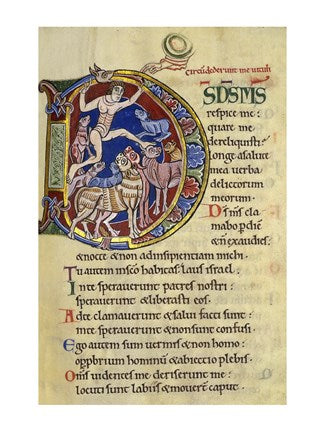 circūdederunt me uituli
DS DS MS
respice me:
quare me
dereliquisti:
longe a salute
mea uerba
delictorum
meorum.
Ds ms cla
mabo p diē
& n exaudies:
& nocte & non ad insipientiam michi.
Tu autem in scō habitas: laus israel.
In te sperauerunt patres nostri:
sperauerunt & liberasti eos.
Ad te clamauerunt & salui facti sunt:
in te sperauerunt & non sunt confusi.
Ego autem sum uermis & non homo:
opprobrium hominū & abiectio plebis.
Oms uidentes me deriserunt me:
locuti sunt labiis & mouerunt caput.